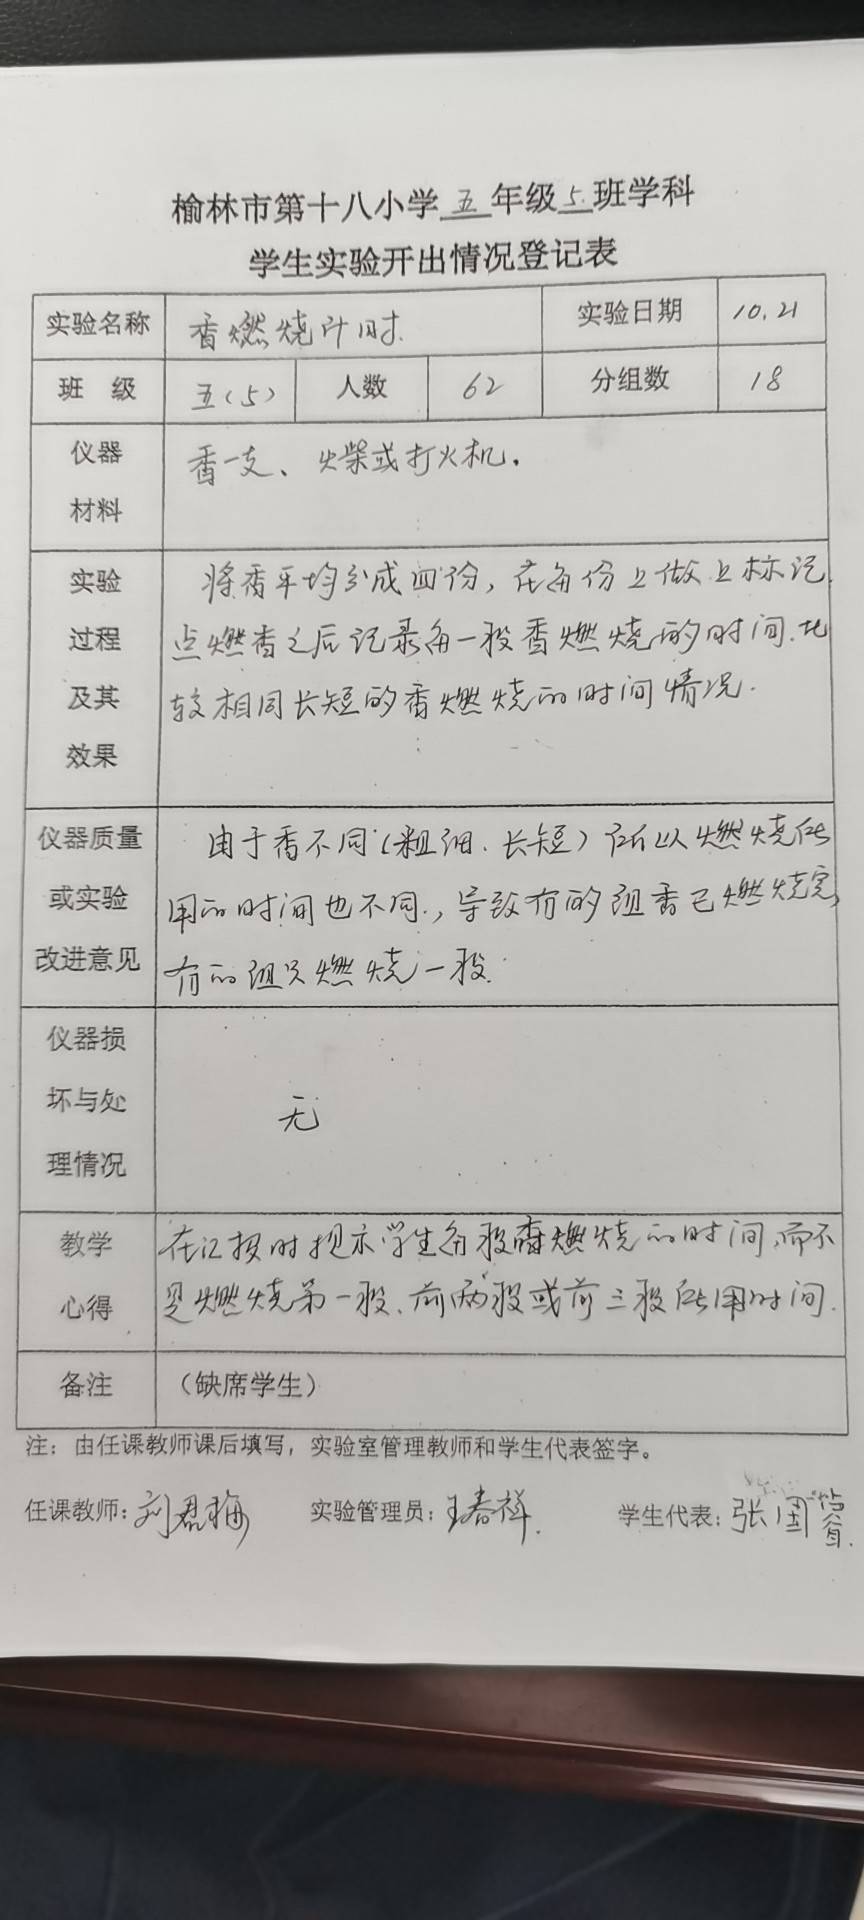 榆林市第十八小学五年级5班学科
学生实验开出情况登记表
实验名称 香燃烧计时. 实验日期 10.21
班 级 五(5) 人数 62 分组数 18
仪器 香一支、火柴或打火机.
材料
实验 将香平均分成四份, 在每份上做上标记.
过程 点燃香之后记录每一段香燃烧的时间.比
及其 较相同长短的香燃烧的时间情况.
效果
仪器质量 由于香不同(粗细、长短)所以燃烧所
或实验 用的时间也不同., 导致有的组香已燃烧完,
改进意见 有的组只燃烧一段.
仪器损
坏与处 无
理情况
教学 在汇报时提示学生每段香燃烧的时间,而不
心得 是燃烧第一段、前两段或前三段所用时间.
备注 (缺席学生)
注: 由任课教师课后填写, 实验室管理教师和学生代表签字。
任课教师: 刘君梅 实验管理员: 王春祥. 学生代表: 张